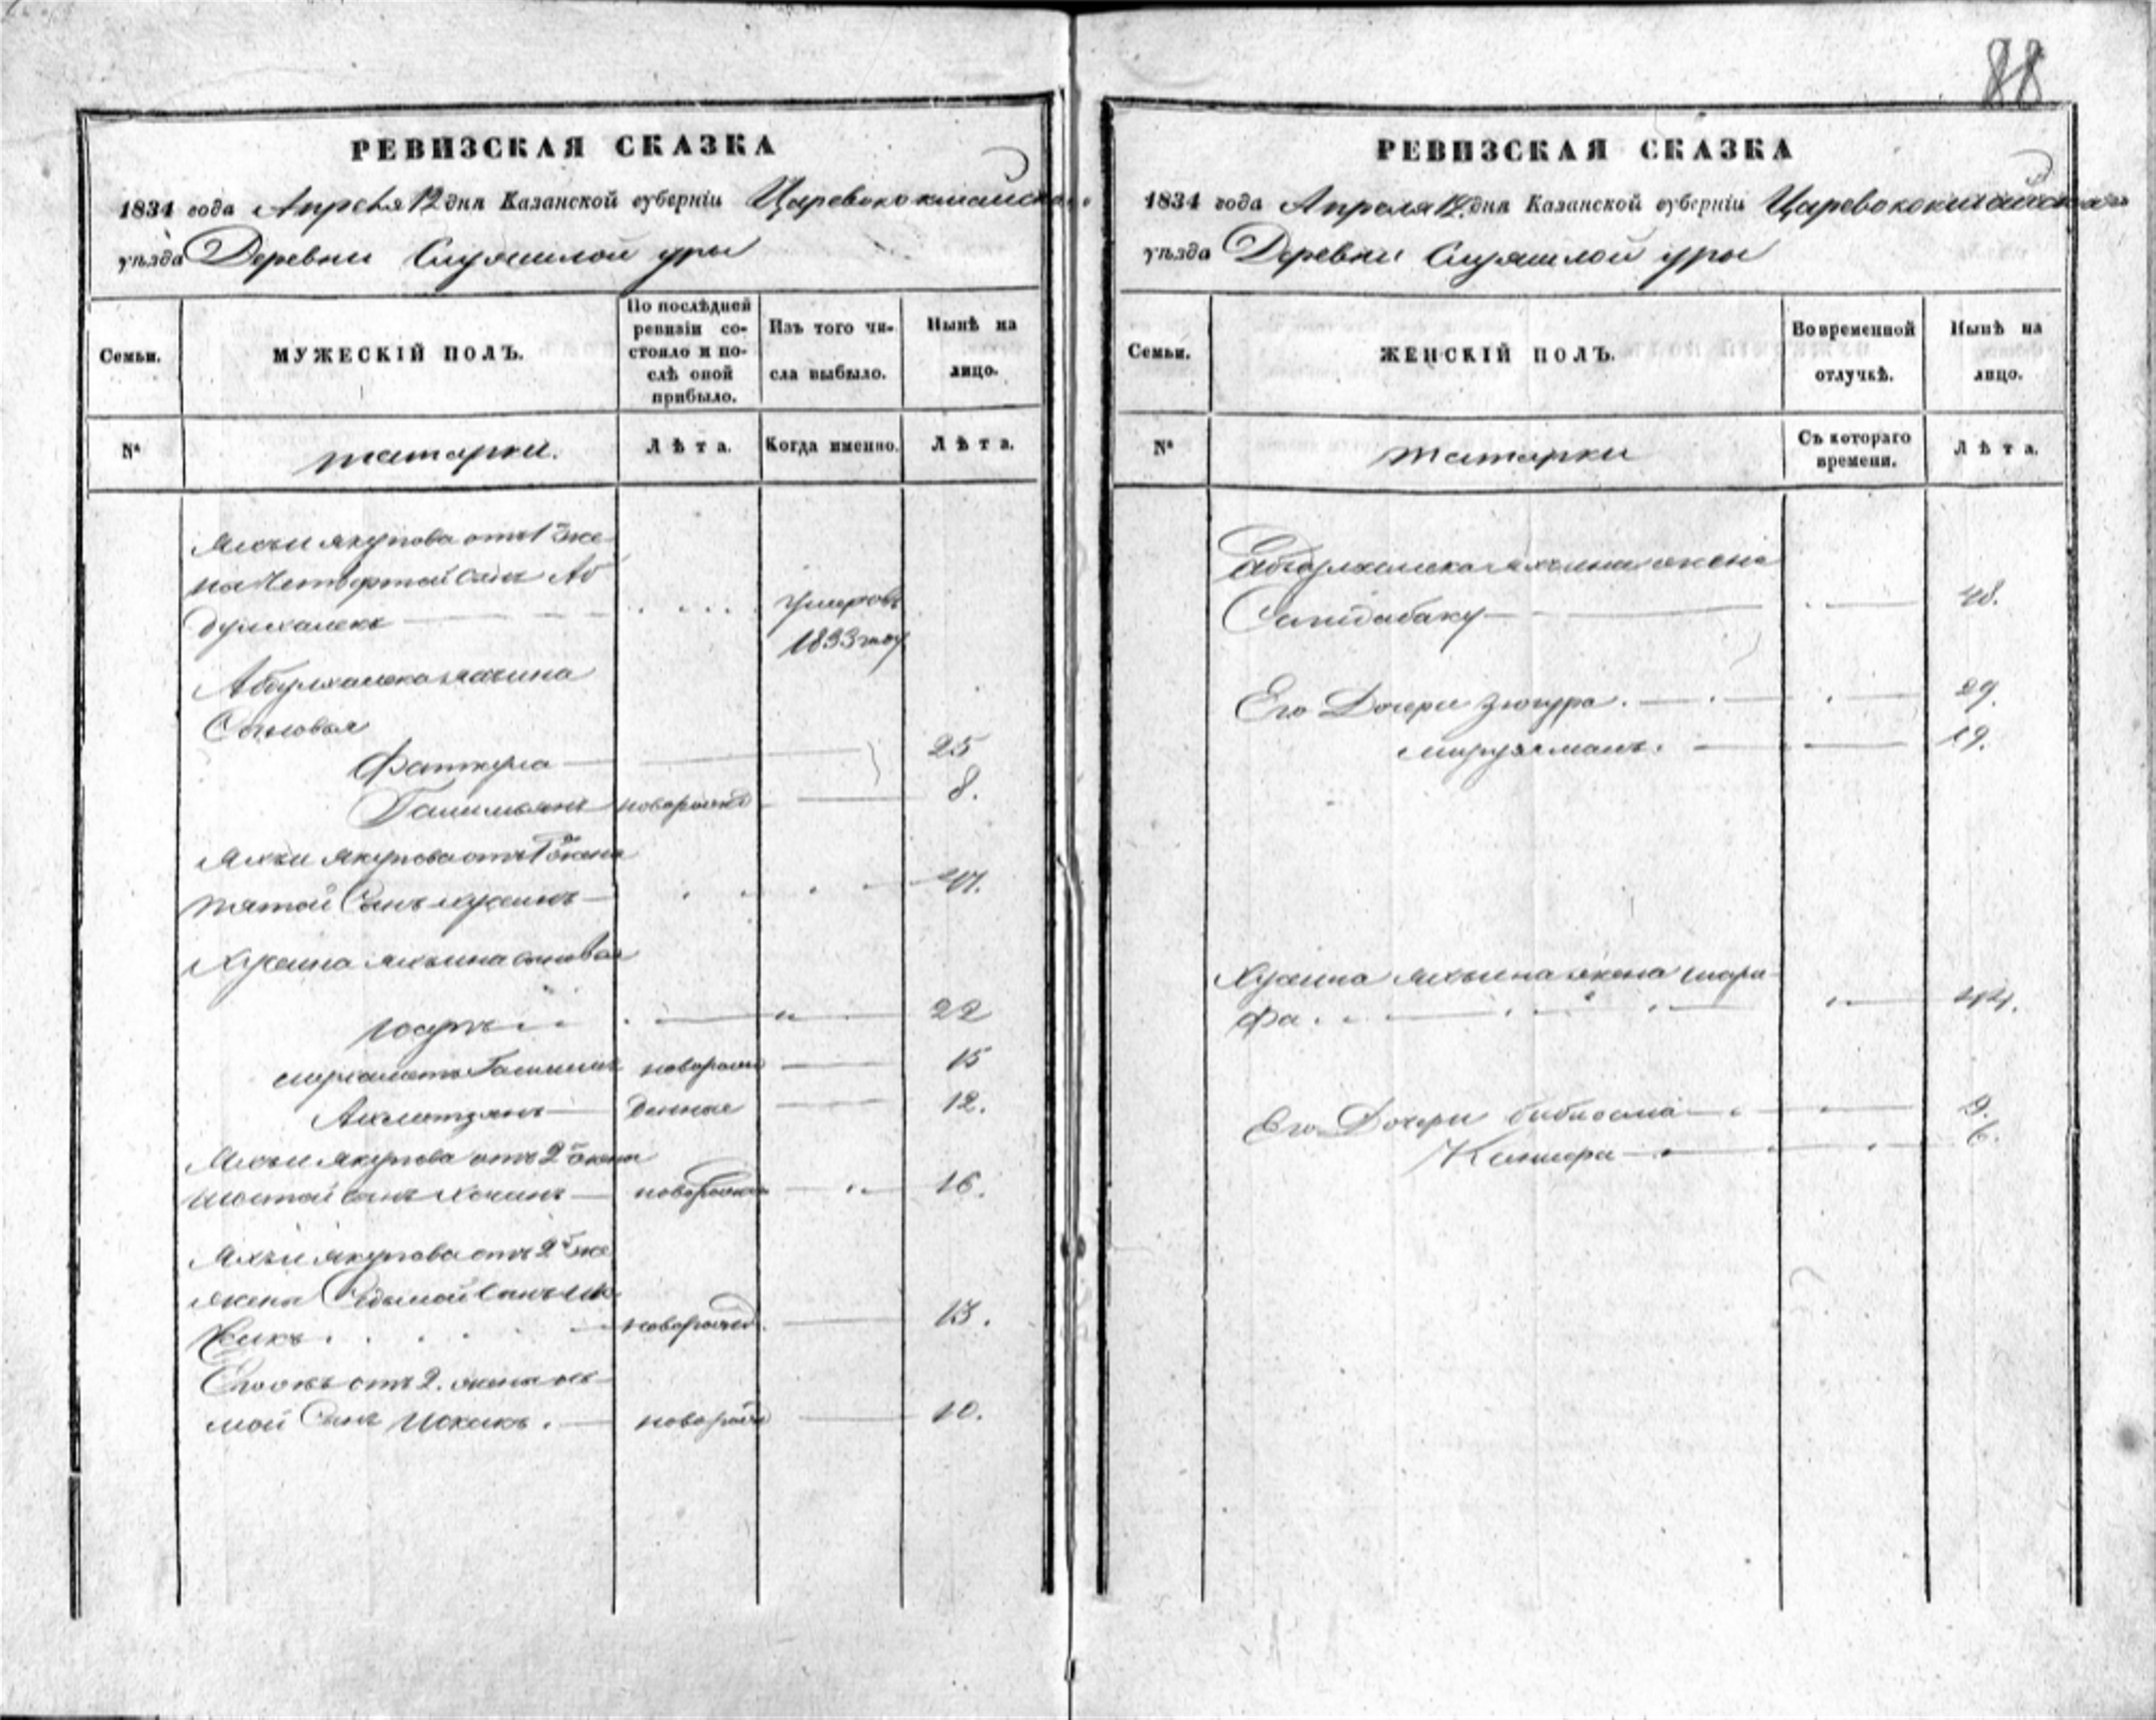 88
РЕВИЗСКАЯ СКАЗКА
1834 года Апреля 12 дня Казанской губерніи Царевококшайскаго
уѣзда Деревни уры
Семьи.
МУЖЕСКІЙ ПОЛЪ.
По послѣдней ревизіи со-
стояло и по-
слѣ оной
прибыло.
Изъ того чи-
сла выбыло.
Нынѣ на
лицо.
№
татарки.
Лѣта.
Когда именно.
Лѣта.
Яхъи якупова отъ 1й же
на Четвертой Сынъ Аб
дулхалекъ
умеръ въ
1833 году
Абдулхалека яхъина
Сыновья
Фаткула 25
новорожд 8.
Яхъи якупова отъ 1й жена
пятой Сынъ хусаинъ 47.
Хусаина яхъина сыновья
22
новорож 15
Ахметзянъ денные 12.
Яхъи якупова отъ 2й жена
шостой сынъ новорожд 16.
Яхъи якупова отъ 2й же
жена Седьмой Сынъ
новорожд. 13.
Егоожъ отъ 2. жена ось
мой Сынъ Искакъ. новорож 10.
РЕВИЗСКАЯ СКАЗКА
1834 года Апреля 12. дня Казанской губерніи Царевококшайскаго
уѣзда Деревни уры
Семьи.
ЖЕНСКІЙ ПОЛЪ.
Во временной
отлучкѣ.
Нынѣ на
лицо.
№
татарки
Съ котораго
времени.
Лѣта.
Абдулхалека яхъина жена
48.
Его Дочери зюгура. 29.
19.
Хусаина яхъина жена шари
фа 44.
Его Дочери 9.
6.